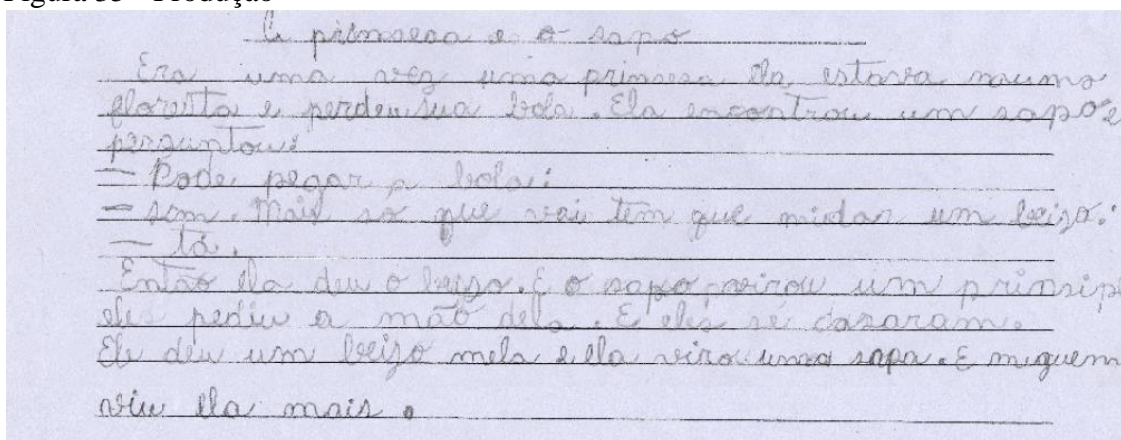 A primsesa e o sapo
Era uma vez uma prinsesa ela estava numa
floresta e perdeu sua bola. Ela encontrou um sapo e
perguntou:
— Pode pegar a bola:
— sem. Mais só que vai tem que midar um beizo.
— tá.
Então ela deu o beizo. E o sapo virou um prinsipe
eles pediu a mão dela. E eles se casaram.
Ele deu um beizo mela e ela virou uma sapa. E miguem
viu ela mais.